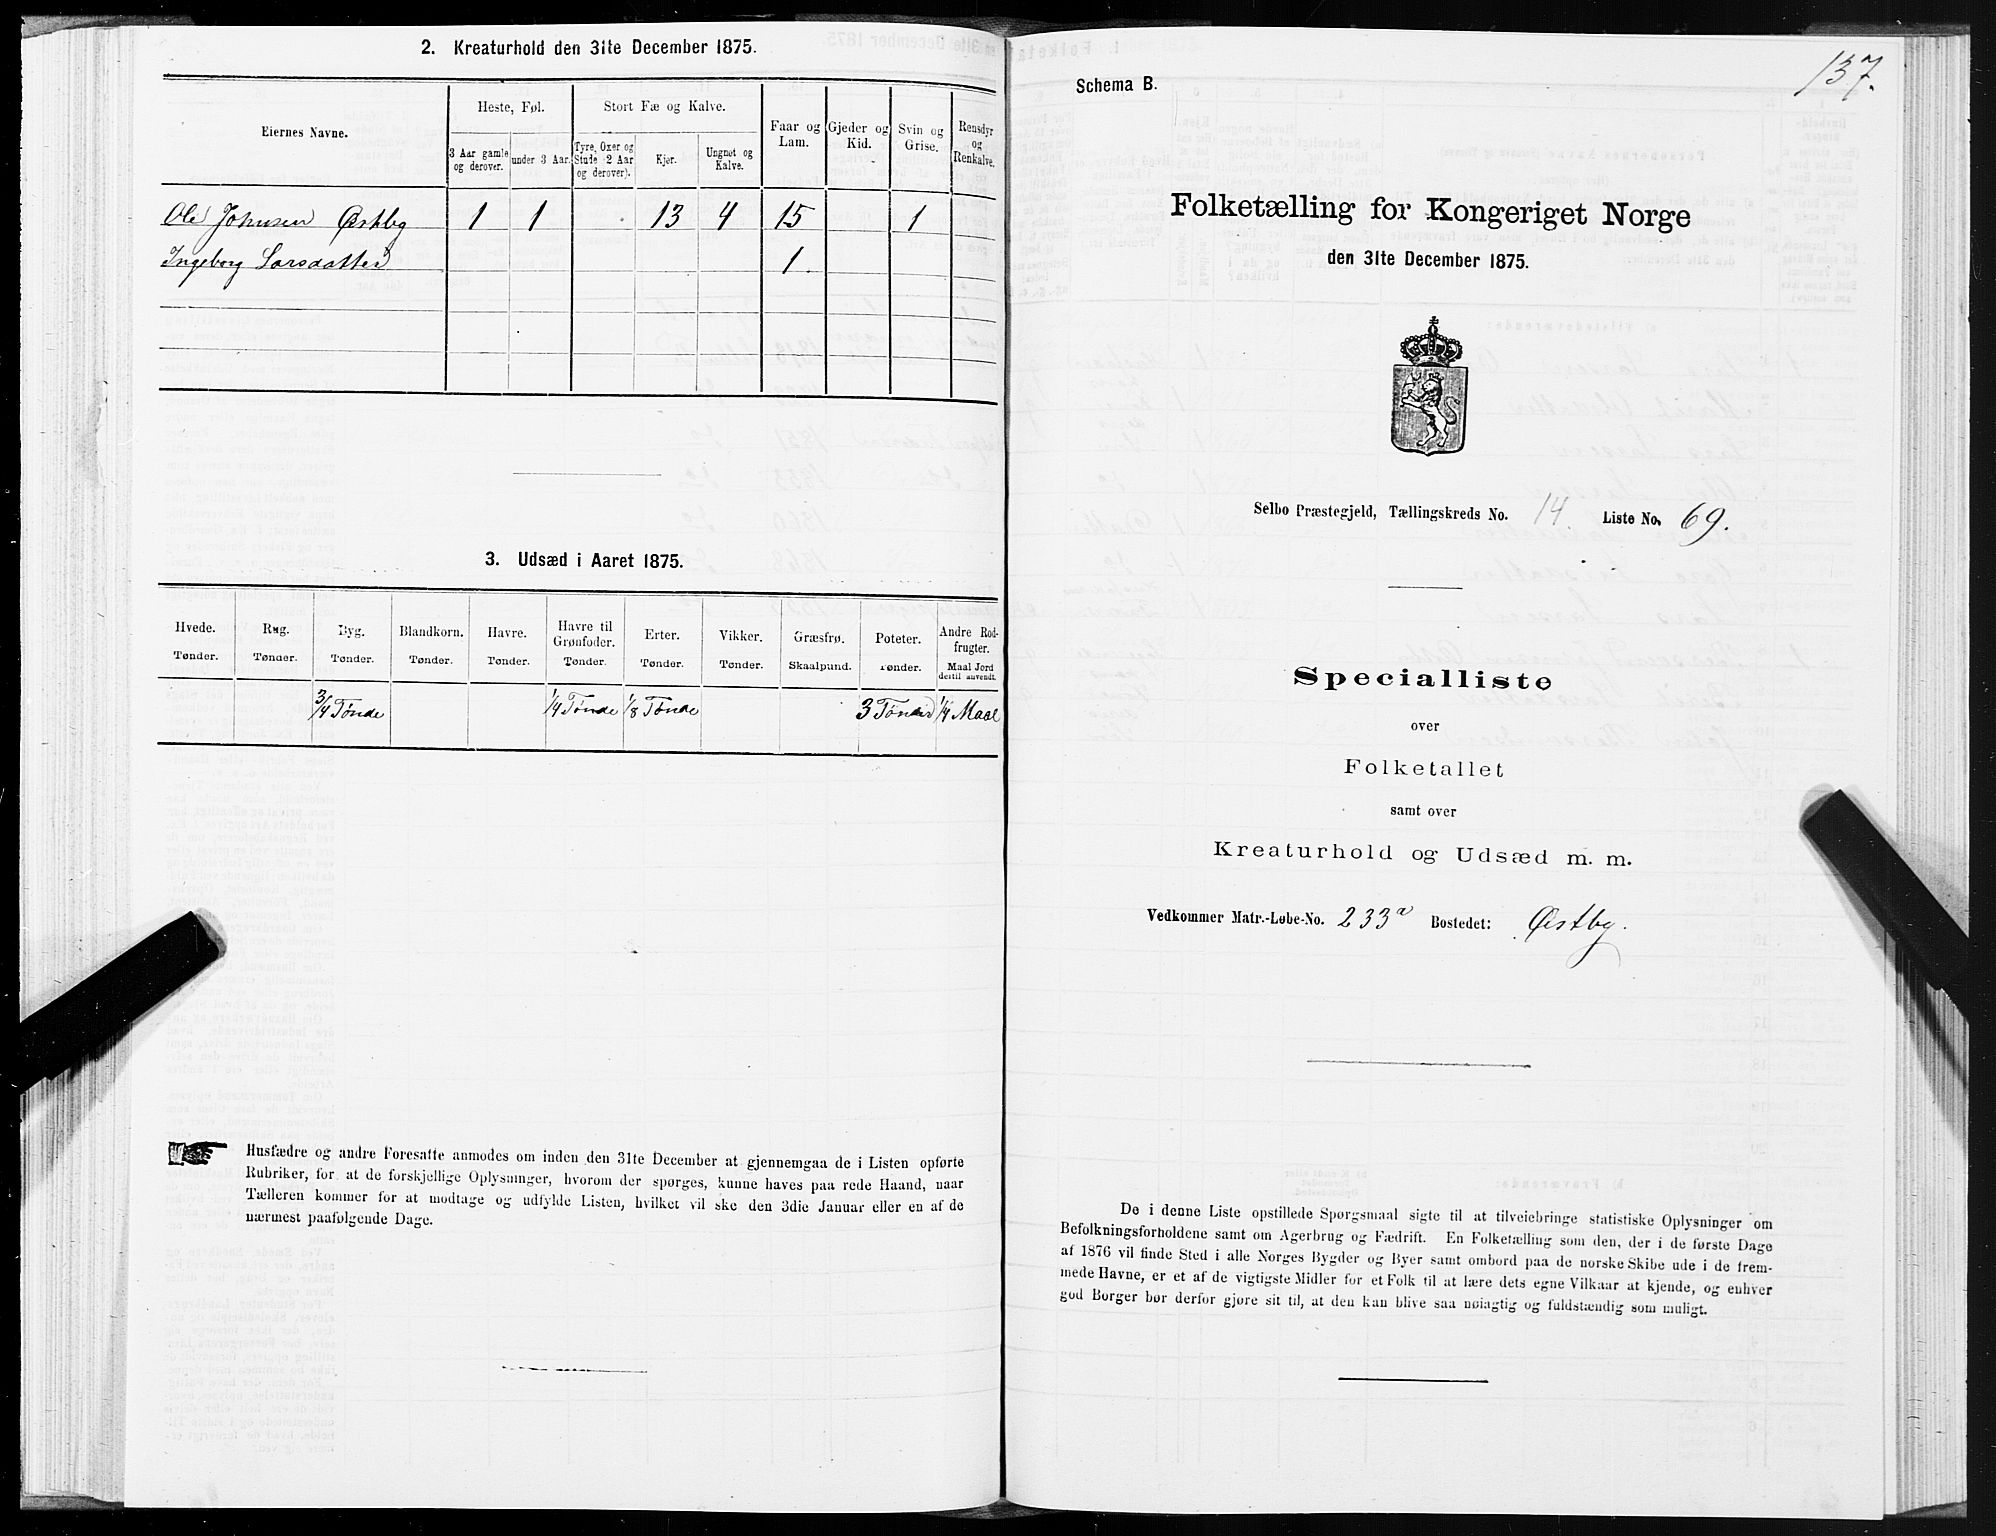 2. Kreaturhold den 31te December 1875.
Eiernes Navne. Heste, Føl. Stort Fæ og Kalve. Faar og Lam. Gjeder og Kid. Svin og Grise. Rensdyr og Renkalve.
3 Aar gamle og derover. under 3 Aar. Tyre, Oxer og Stude (2 Aar og derover). Kjør. Ungnøt og Kalve.
Ole Johnsen Østby 1 1 13 4 15 1
Ingeborg Larsdatter 1.
3. Udsæd i Aaret 1875.
Hvede. Rug. Byg. Blandkorn. Havre. Havre til Grønfoder. Erter. Vikker. Græsfrø. Poteter. Andre Rodfrugter.
Tønder. Tønder. Tønder. Tønder. Tønder. Tønder. Tønder. Tønder. Skaalpund. Tønder. Maal Jord dertil anvendt.
3/4 Tønde 1/4 Tønde 1/8 Tønde 3 Tønder 1/4 Maal
Husfædre og andre Foresatte anmodes om inden den 31te December at gjennemgaa de i Listen opførte
Rubriker, for at de forskjellige Oplysninger, hvorom der spørges, kunne haves paa rede Haand, naar
Tælleren kommer for at modtage og udfylde Listen, hvilket vil ske den 3die Januar eller en af de
nærmest paafølgende Dage.
137.
Schema B.
Folketælling for Kongeriget Norge
den 31te December 1875.
Selbo Præstegjeld, Tællingskreds No. 14. Liste No. 69.
Specialliste
over
Folketallet
samt over
Kreaturhold og Udsæd m. m.
Vedkommer Matr.-Løbe-No. 233a Bostedet: Østby.
De i denne Liste opstillede Spørgsmaal sigte til at tilveiebringe statistiske Oplysninger om
Befolkningsforholdene samt om Agerbrug og Fædrift. En Folketælling som den, der i de første Dage
af 1876 vil finde Sted i alle Norges Bygder og Byer samt ombord paa de norske Skibe ude i de frem-
mede Havne, er et af de vigtigste Midler for et Folk til at lære dets egne Vilkaar at kjende, og enhver
god Borger bør derfor gjøre sit til, at den kan blive saa nøiagtig og fuldstændig som muligt.